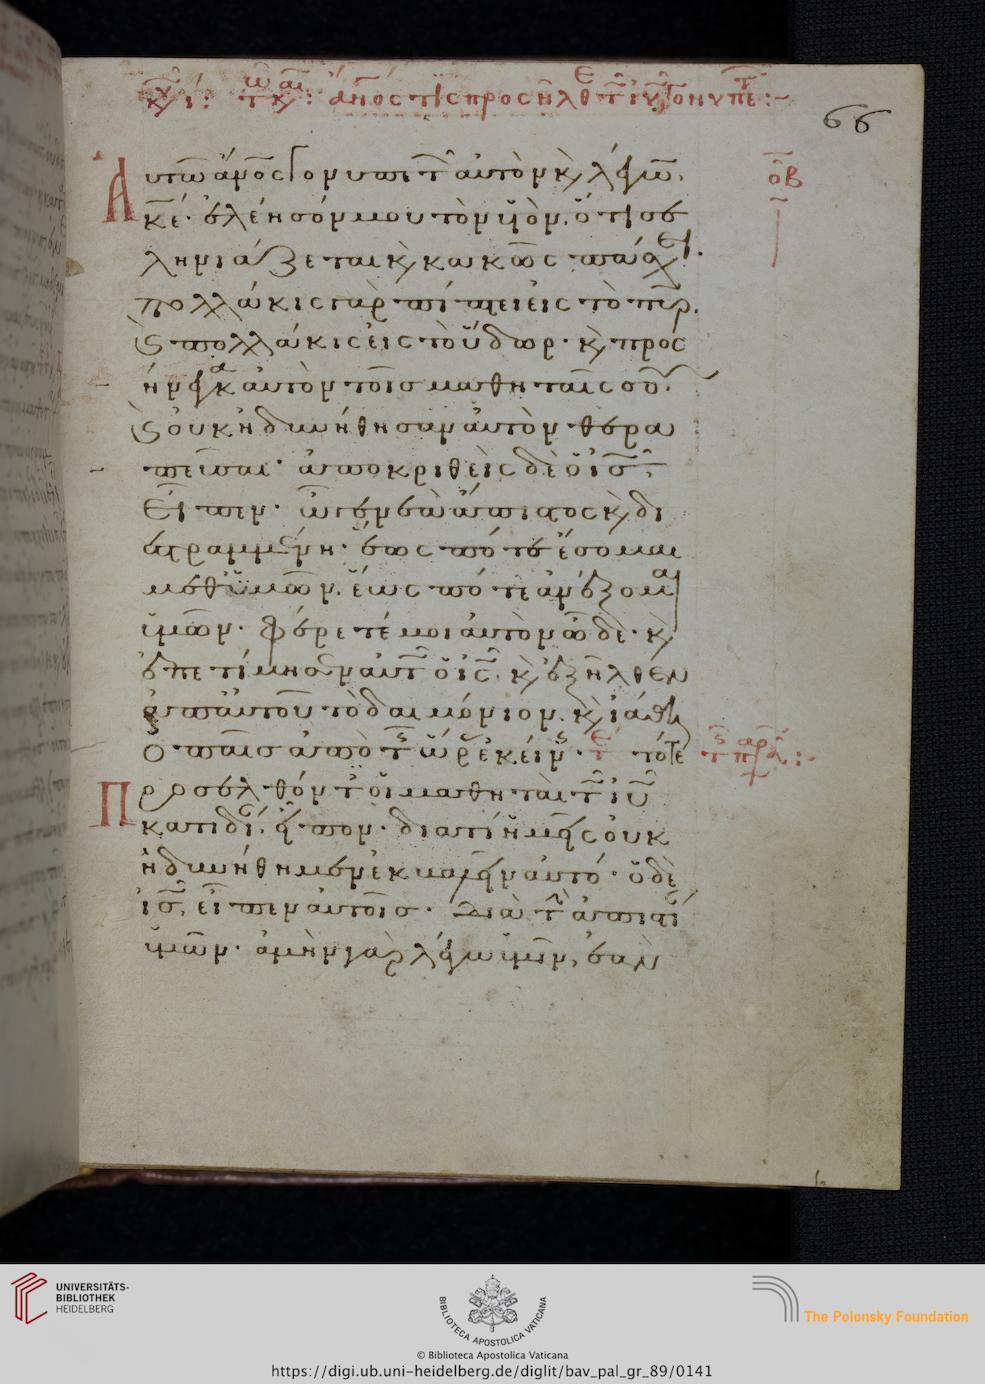 κυ ι: τω και: ανος τις προσηλθε τω ιυ γονυπετ:-
66
Αυτῶ ἄνος γονυπετ αὐτὸν κ λέγων,
κέ· ἐλέησόν μου τὸν υἱὸν, ὅτι σε
ληνιάζεται κ κακῶς πάσχει.
πολλάκις γὰρ πίπτει εἰς τὸ πῦρ,
κ πολλάκις εἰς τὸ ὕδωρ· κ προσ
ήνεγκα αὐτὸν τοῖς μαθηταῖς σου·
κ οὐκ ἠδυνήθησαν αὐτὸν θερα
πεῦσαι· ἀποκριθεὶς δὲ ὁ ις
εἶπεν· ὦ γενεὰ ἄπιστος κ δι
εστραμμένη· ἕως πότε ἔσομαι
μεθ ὑμῶν. ἕως πότε ἀνέξομαι
ὑμῶν. φέρετέ μοι αὐτὸν ὧδε· κ
ἐπετίμησεν αὐτ ὁ ις. κ ἐξῆλθεν
ἀπ αὐτοῦ τὸ δαιμόνιον. κ ἰάθη
ὁ παῖς ἀπὸ τῆς ὥρ ἐκείνης· τότε
Προσελθόντ οἱ μαθηταὶ τῶ ιυ
κατιδί, εἶπον· διατί ἡμεῖς οὐκ
ἠδυνήθημεν ἐκβαλεῖν αὐτό· ὁ δὲ
ις, εἶπεν αὐτοῖς· Διὰ τὴν ἀπιστί
ὑμῶν· ἀμὴν γὰρ λέγω ὑμῖν, ἐὰν
οβ
UNIVERSITÄTS-
BIBLIOTHEK
HEIDELBERG
BIBLIOTECA APOSTOLICA VATICANA
© Biblioteca Apostolica Vaticana
The Polonsky Foundation
https://digi.ub.uni-heidelberg.de/diglit/bav_pal_gr_89/0141